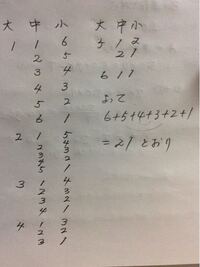 大 中 小
1 1 6
2 5
3 4
4 3
5 2
6 1
2 1 5
2 4
3 3
4 2
5 1
3 1 4
2 3
3 2
4 1
4 1 3
2 2
3 1
大 中 小
5 1 2
2 1
6 1 1
よって
6+5+4+3+2+1
=21とおり